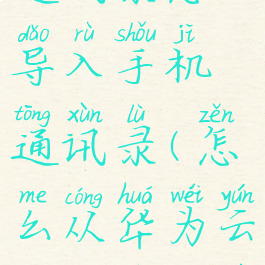 dǎo rù shǒu jī
导入手机
tōng xùn lù zěn
通讯录(怎
me cóng huá wéi yún
么从华为云